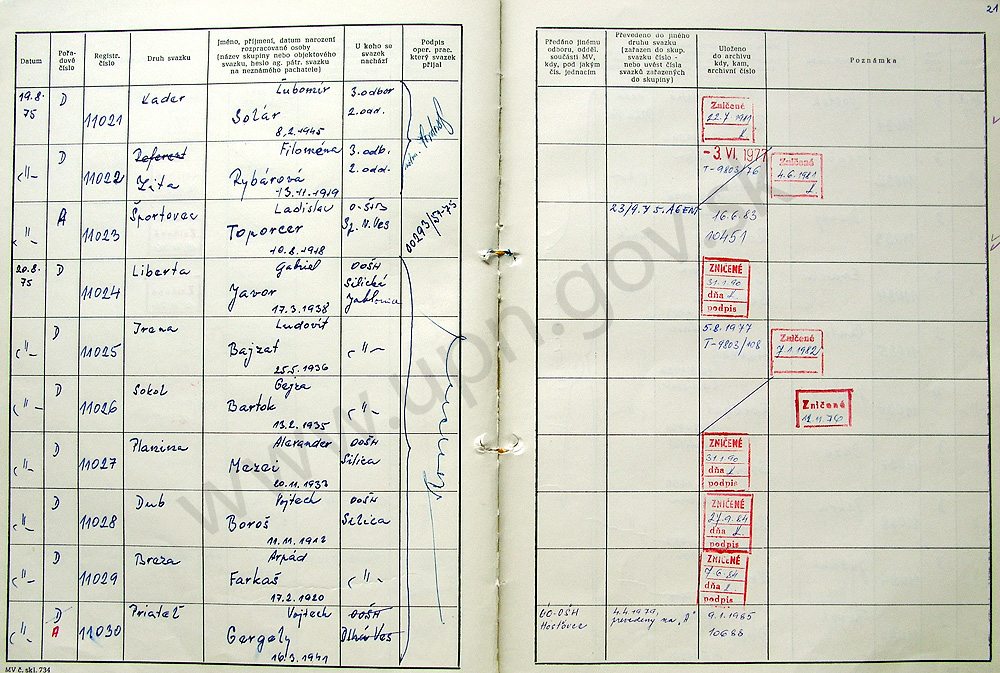 21
Datum
Pořadové číslo
Registr. číslo
Druh svazku
Jméno, příjmení, datum narození rozpracované osoby (název skupiny nebo objektového svazku, heslo ag. pátr. svazku na neznámého pachatele)
U koho se svazek nachází
Podpis oper. prac. který svazek přijal
Předáno jinému odboru, odděl. součásti MV, kdy, pod jakým čís. jednacím
Převedeno do jiného druhu svazku (zařazen do skup. svazku číslo - nebo uvést čísla svazků zařazených do skupiny)
Uloženo do archivu kdy, kam, archivní číslo
Poznámka
19.8. 75
D
11021
Kader
Ľubomír
Solár
8.2.1945
3. odbor
2. odd.
Zničené
22.7.1981
D
11022
Referent
Zita
Filoména
Rybárová
13.11.1919
3. odb.
2. odd.
-3. VI. 1977
T-9803/76
Zničené
4.6.1981
A
11023
Športovec
Ladislav
Toporcer
10.8.1918
O-ŠtB
Sp. N. Ves
00293/57-75
23/9.75. AGENT
16.6.83
10451
20.8. 75
D
11024
Liberta
Gabriel
Javor
17.3.1938
OOŠH
Silická
Jablonica
ZNIČENÉ
31.1.90
dňa
podpis
D
11025
Irena
Ľudovít
Bajzat
25.5.1936
5.8.1977
T-9803/108
Zničené
7.1.1982
D
11026
Sokol
Gejza
Bartok
13.2.1935
Zničené
D
11027
Planina
Alexander
Mezei
OOŠH
Silica
ZNIČENÉ
31.1.90
dňa
podpis
D
11028
Dub
Vojtech
Boroš
OOŠH
Silica
ZNIČENÉ
27.9.84
dňa
podpis
D
11029
Breza
Arpád
Farkaš
17.2.1920
ZNIČENÉ
7.6.84
dňa
podpis
D
A
11030
Priateľ
Vojtech
Gergely
16.3.1941
OOŠH
Dlhá Ves
OO-OŠH
Hosťovce
4.4.1979
prevedený na "A"
9.1.1985
10688
MV č. skl. 734
www.upn.gov.sk